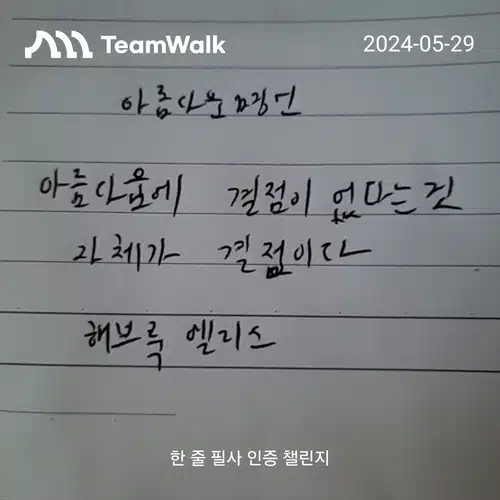 TeamWalk
2024-05-29
아름다운 명언
아름다움에 결점이 없다는것
자체가 결점이다
해브룩 엘리스
한 줄 필사 인증 챌린지